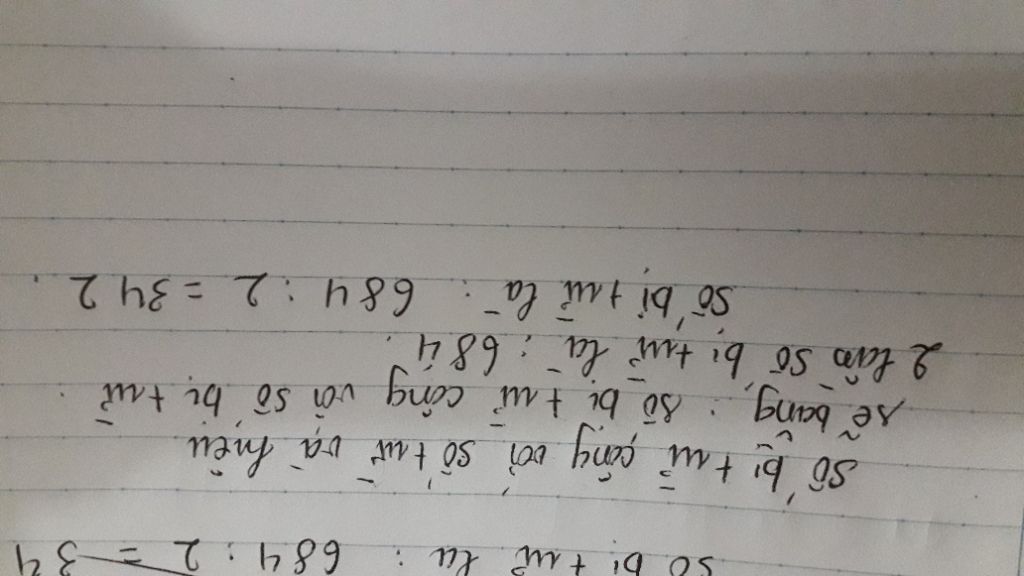 số bị trừ là : 684 : 2 = 34
Số bị trừ cộng với số trừ và hiệu
sẽ bằng : số bị trừ cộng với số bị trừ :
2 lần số bị trừ là : 684.
Số bị trừ là : 684 : 2 = 342.